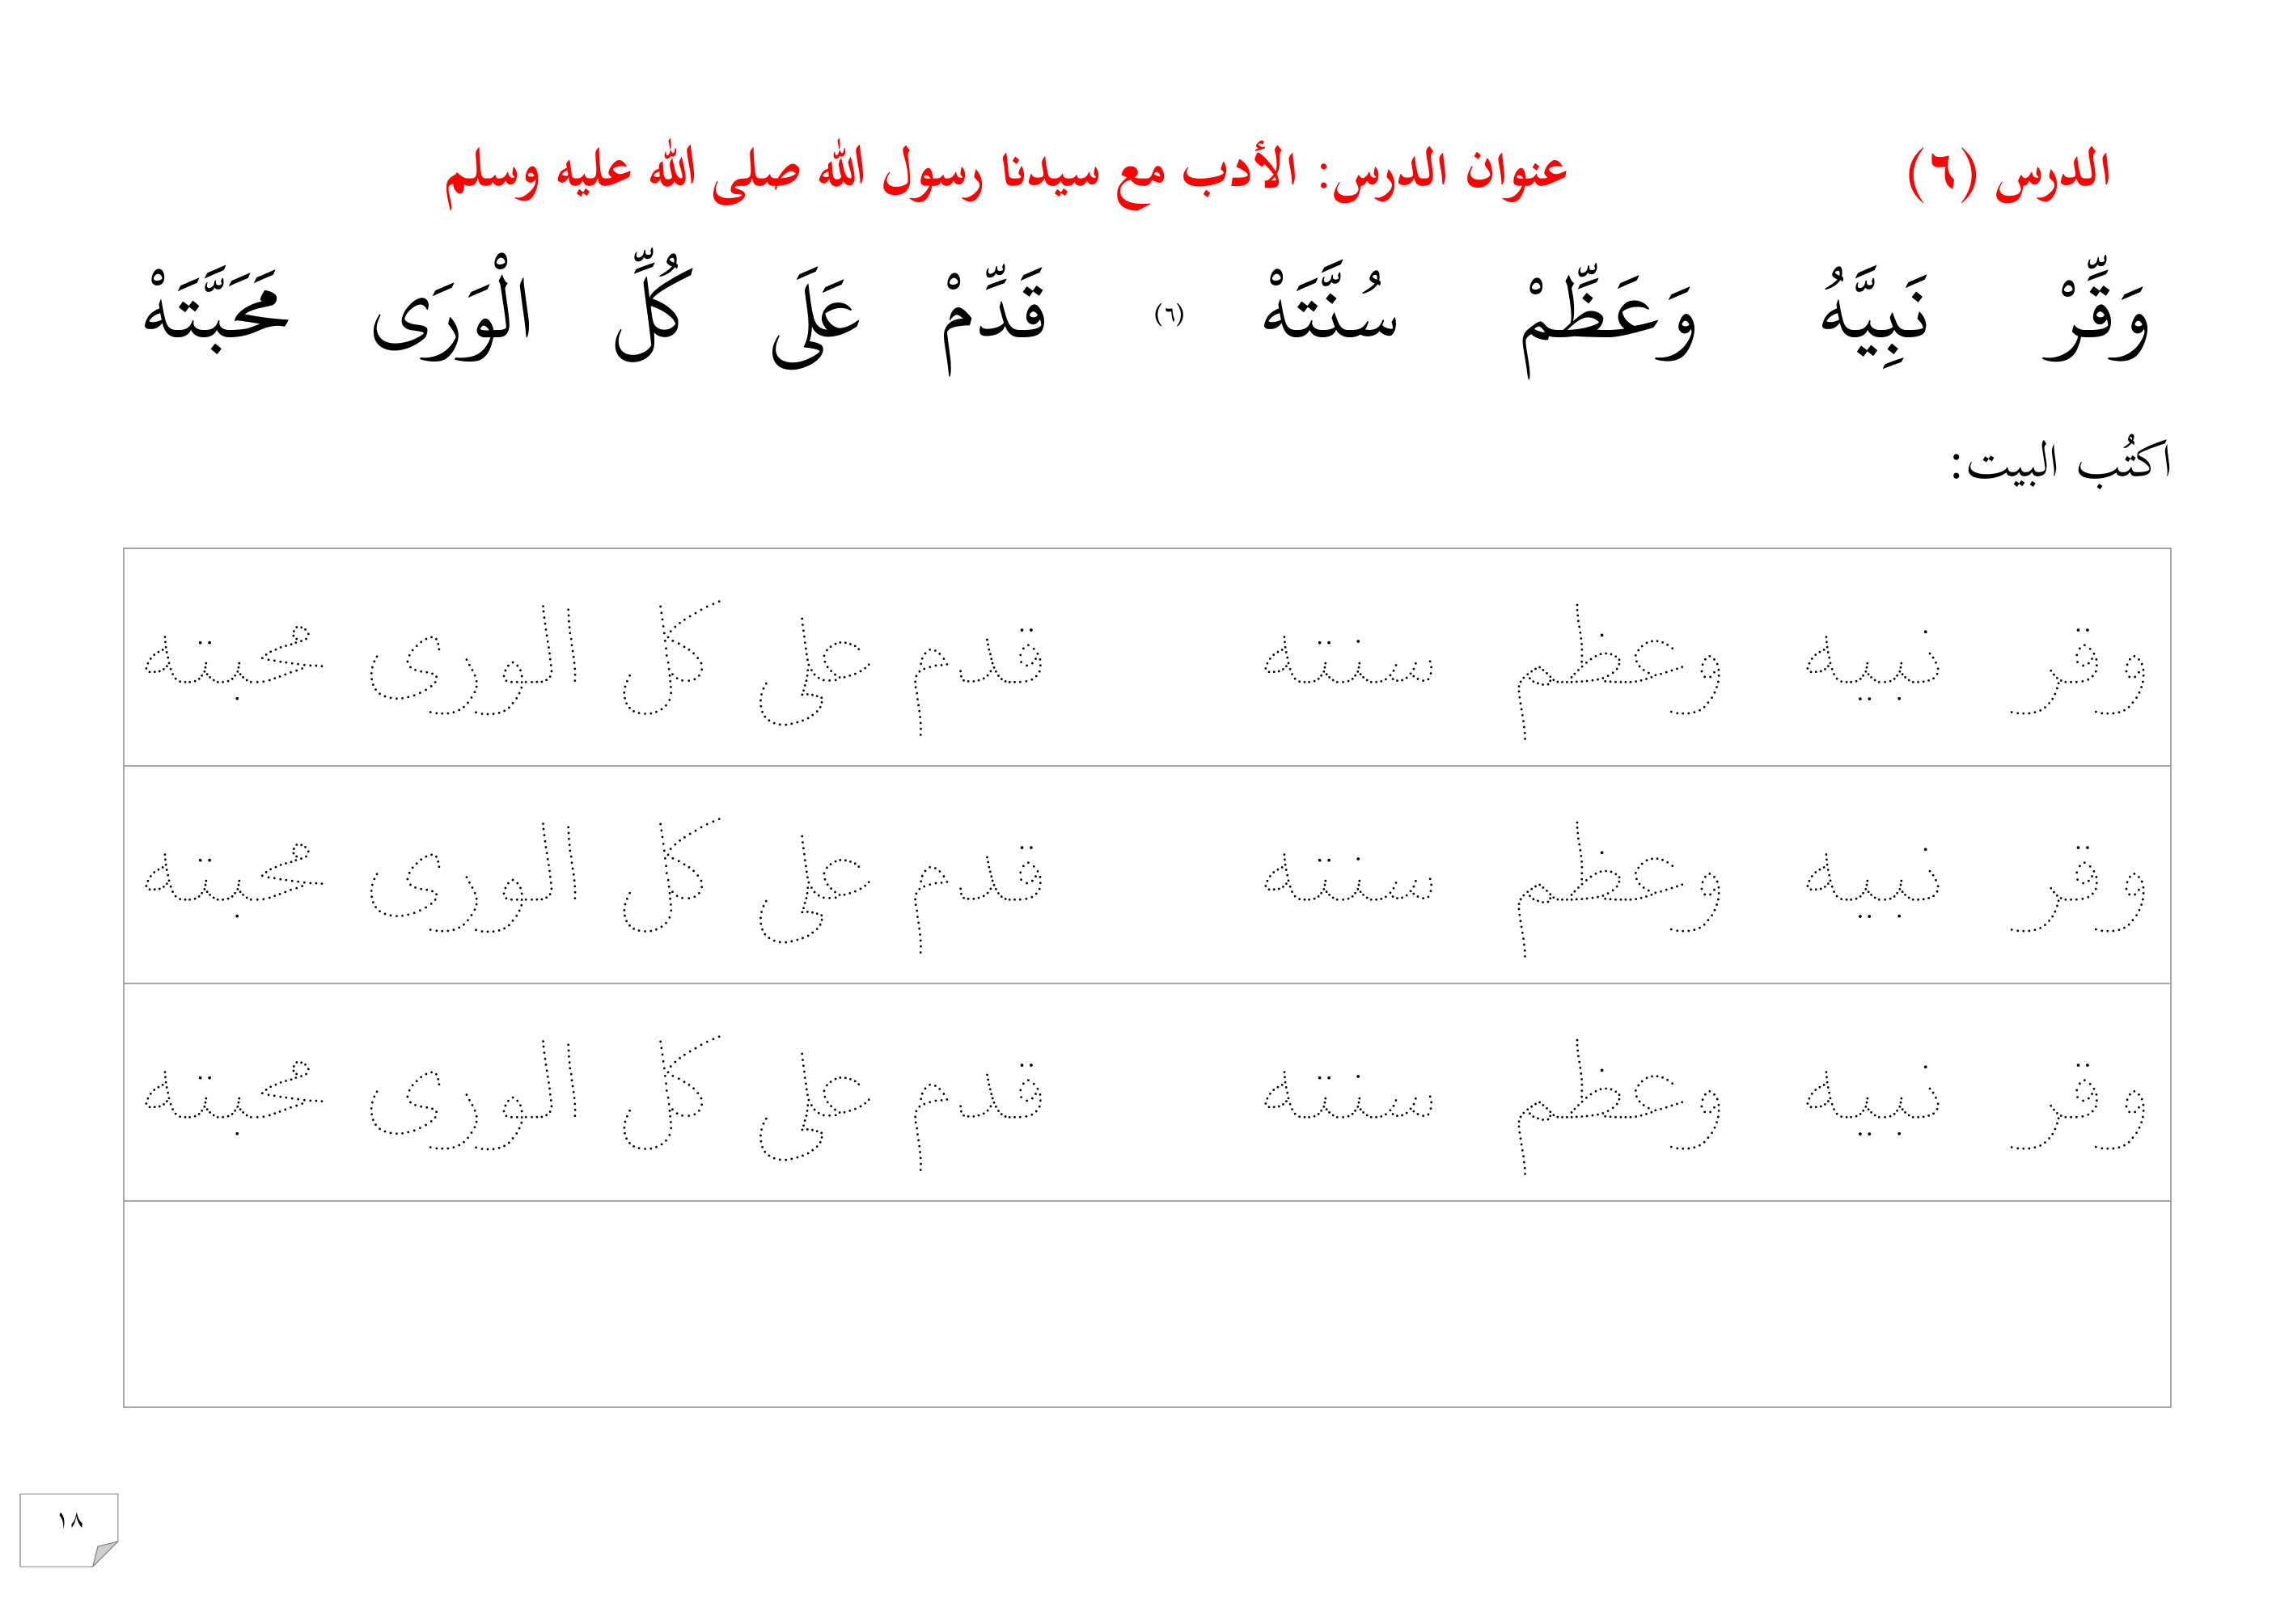 الدرس (٦) عنوان الدرس: الأدب مع سيدنا رسول الله صلى الله عليه وسلم
وَقِّرْ نَبِيَّهُ وَعَظِّمْ سُنَّتَهْ (٦) قَدِّمْ عَلَى كُلِّ الْوَرَى مَحَبَّتَهْ
اكتُب البيت:
وقر نبيه وعظم سنته قدم على كل الورى محبته
وقر نبيه وعظم سنته قدم على كل الورى محبته
وقر نبيه وعظم سنته قدم على كل الورى محبته
١٨